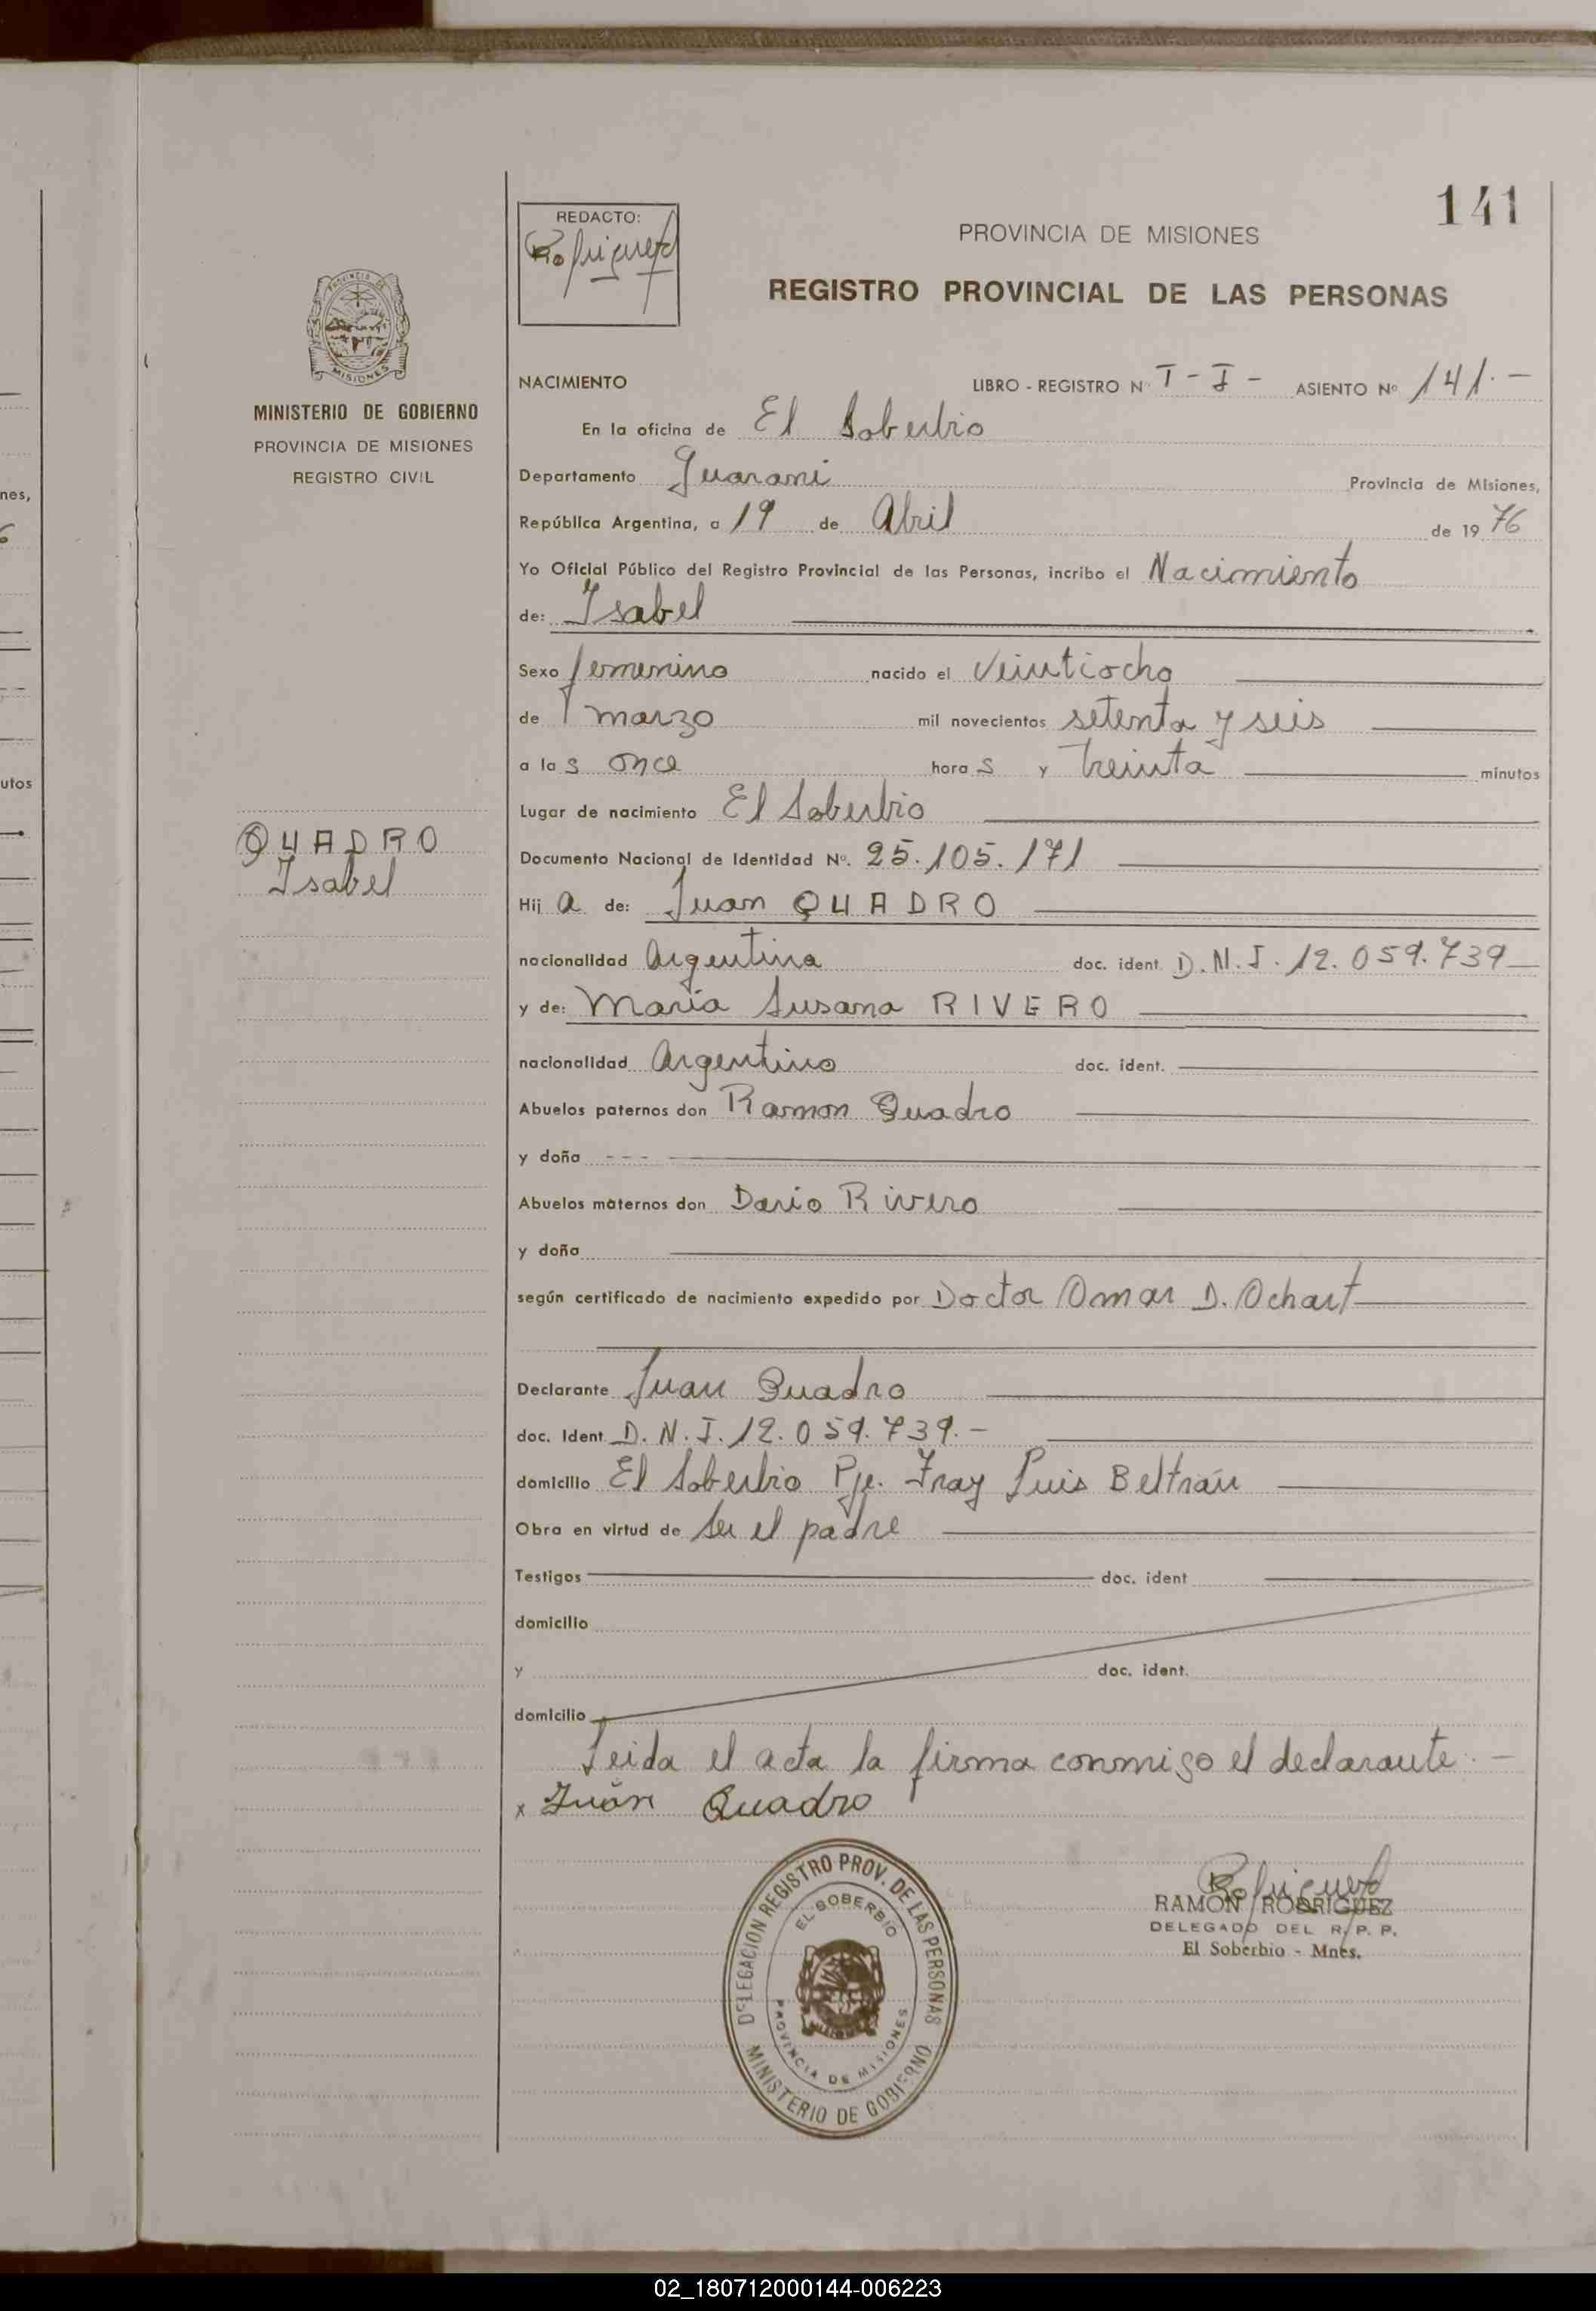 141
REDACTO:
PROVINCIA DE MISIONES
REGISTRO PROVINCIAL DE LAS PERSONAS
MINISTERIO DE GOBIERNO
PROVINCIA DE MISIONES
REGISTRO CIVIL
NACIMIENTO LIBRO - REGISTRO Nº I - I - ASIENTO Nº 141.-
En la oficina de El Soberbio
Departamento Guarani Provincia de Misiones,
República Argentina, a 19 de Abril de 1976
Yo Oficial Público del Registro Provincial de las Personas, incribo el Nacimiento
de: Isabel
Sexo femenino nacido el Veintiocho
de marzo mil novecientos setenta y seis
a las once horas y treinta minutos
Lugar de nacimiento El Soberbio
QUADRO
Isabel
Documento Nacional de Identidad Nº. 25.105.171
Hija de: Juan QUADRO
nacionalidad Argentina doc. ident. D.N.I. 12.059.739
y de: Maria Susana RIVERO
nacionalidad Argentino doc. ident.
Abuelos paternos don Ramon Quadro
y doña ---
Abuelos maternos don Dario Rivero
y doña
según certificado de nacimiento expedido por Doctor Omar D. Ochart
Declarante Juan Quadro
doc. Ident. D.N.I. 12.059.739.-
domicilio El Soberbio Pje. Fray Luis Beltrán
Obra en virtud de Ser el padre
Testigos doc. ident
domicilio
y doc. ident.
domicilio
Leida el acta la firma conmigo el declarante.-
x Juan Quadro
DELEGACION REGISTRO PROV. DE LAS PERSONAS
EL SOBERBIO
PROVINCIA DE MISIONES
MINISTERIO DE GOBIERNO
RAMON RODRIGUEZ
DELEGADO DEL R. P. P.
El Soberbio - Mnes.
nes,
6
utos
PROVINCIA DE
MISIONES
02_180712000144-006223